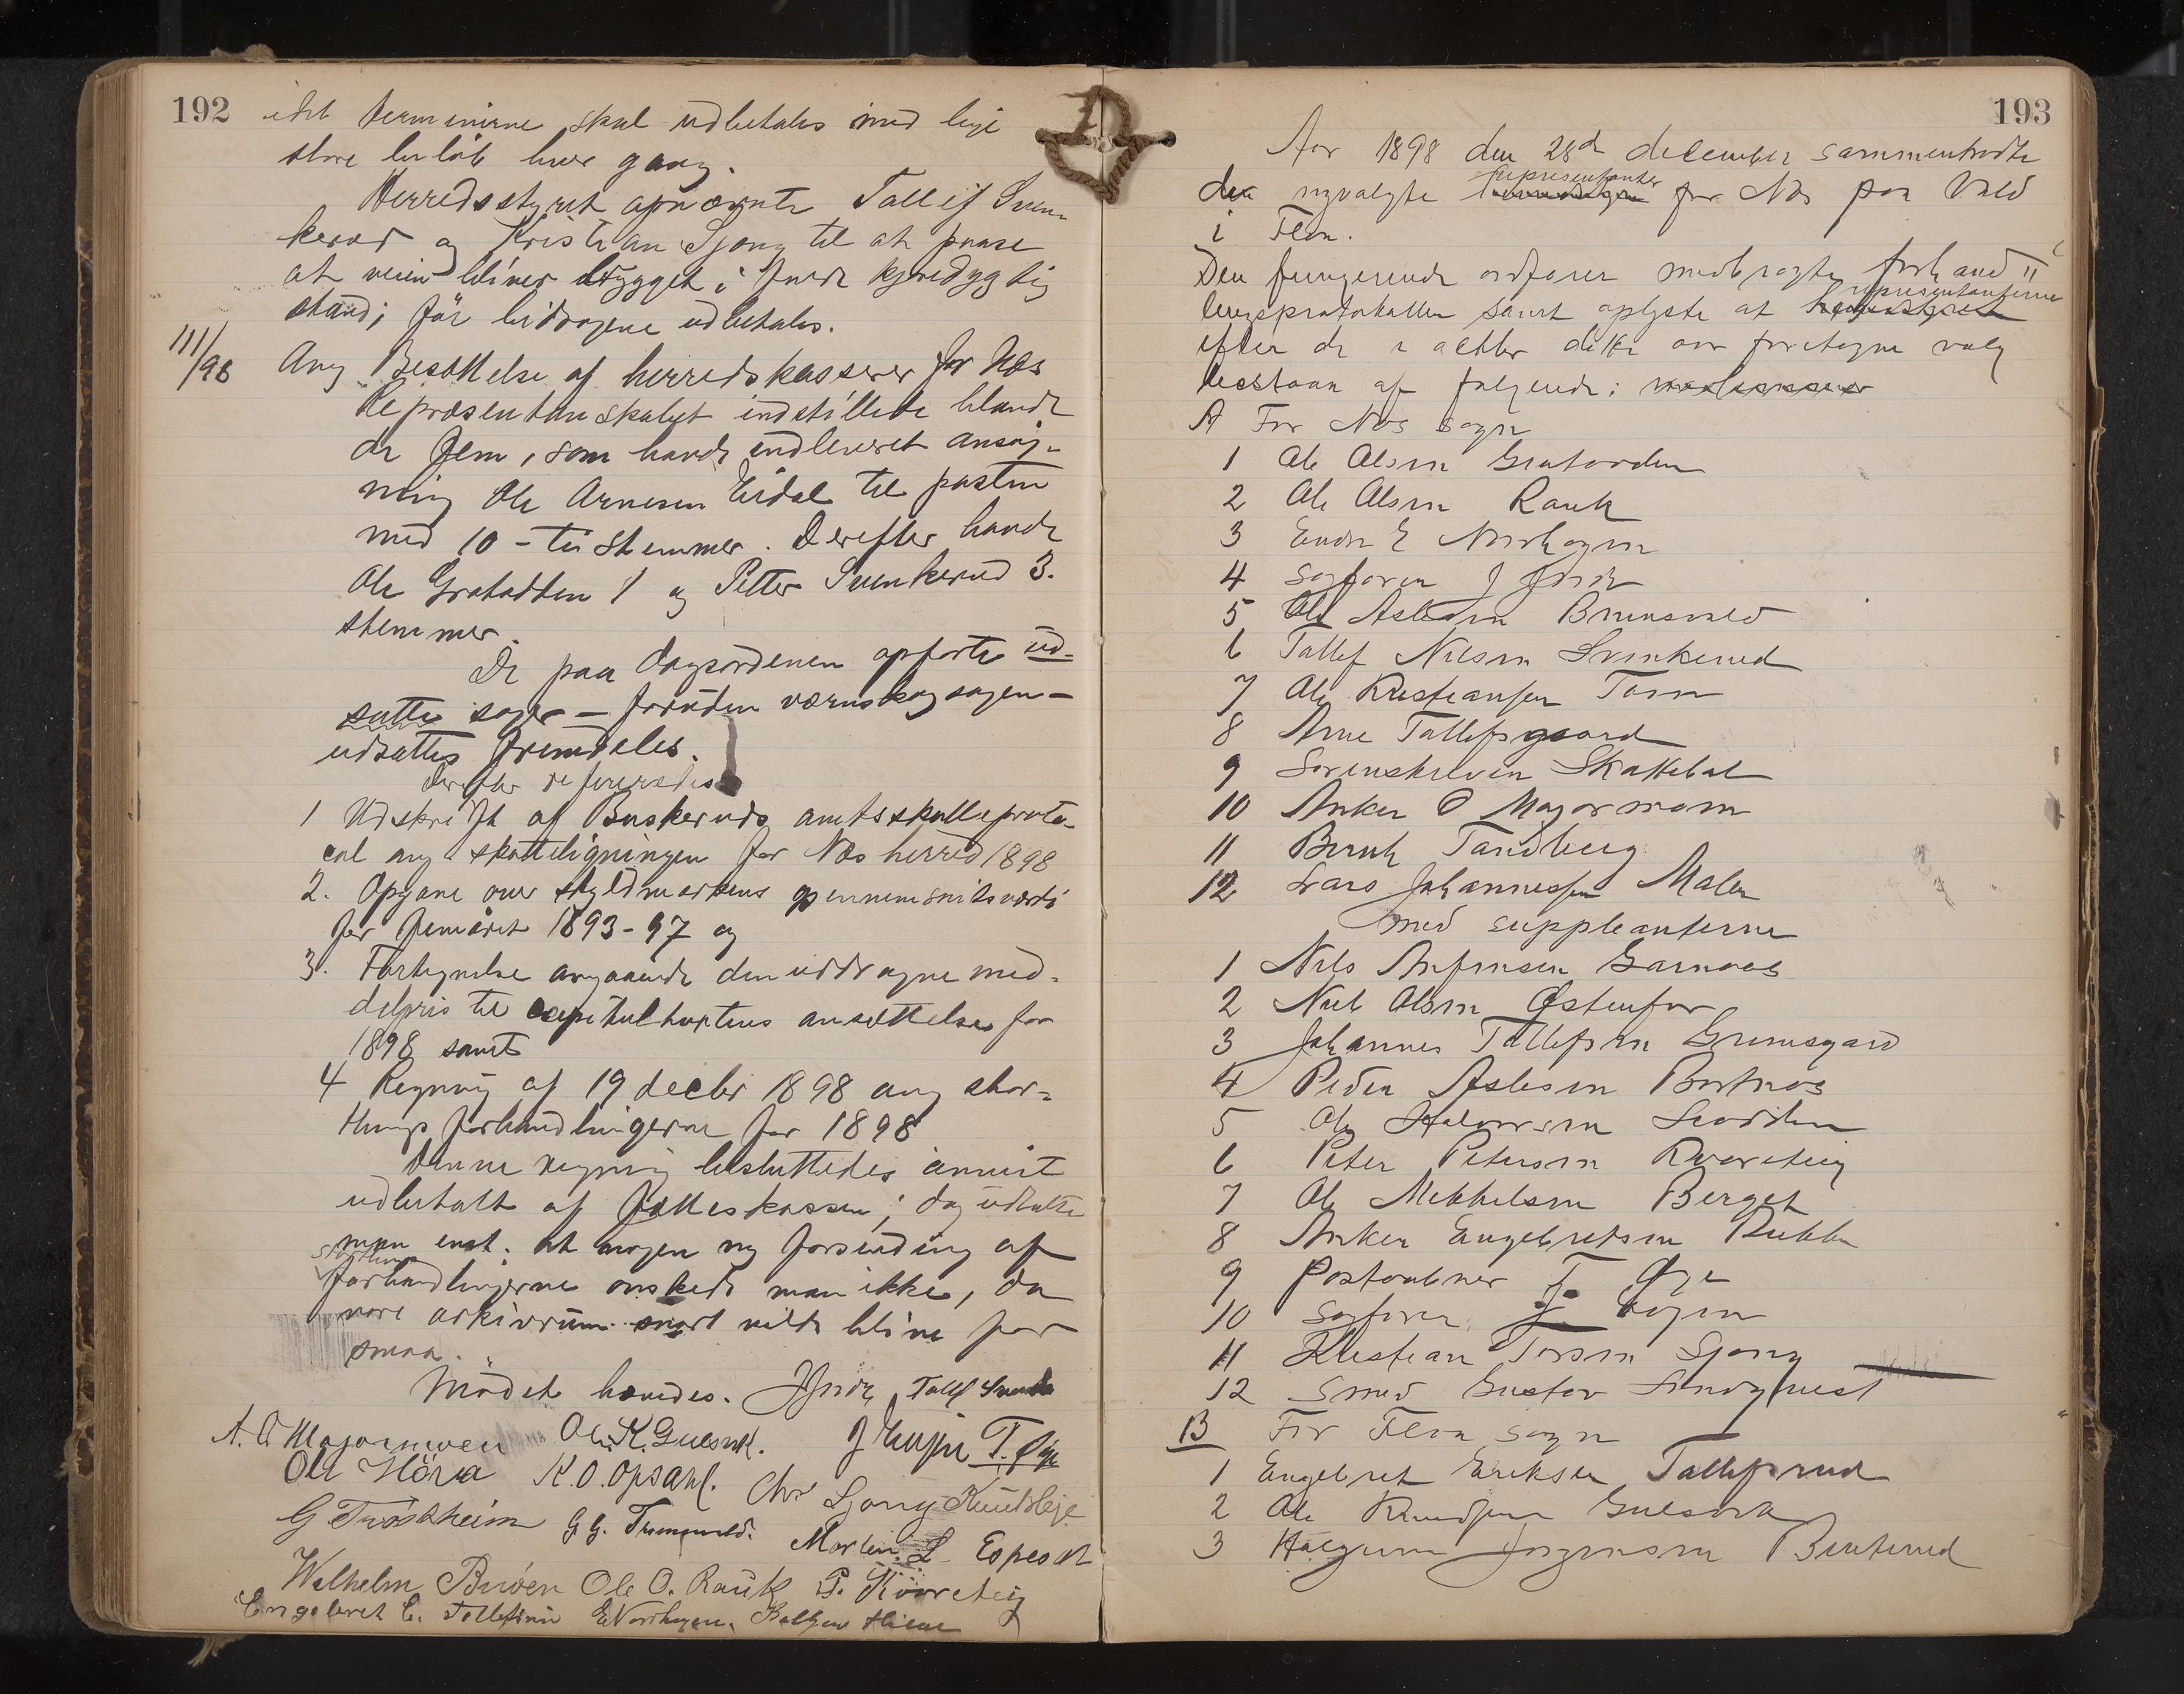 192
idet terminerne skal udbetales med lige
store beløb hver gang.
Herredsstyret opnævnte Tollef Sven-
kerud og Kristian Sjong til at paase
at veien bliver bygget i fuld kjøredygtig
stand, før bidragene udbetales.
111/98 Ang Besættelse af herredskasserer for Næs
Repræsentanskabet indstillede blandt
de fem, som havde indleveret ansøg-
ning Ole Arnesen Eidal til posten
med 10 - ti stemmer. Derefter havde
Ole Grøtadten 1 og Petter Svenkerud 3.
stemmer.
De paa dagsordenen opførte ud-
satte sager - foruden værnskogsagen -
udsattes fremdeles.
Derefter refereredes
1 Udskrift af Buskeruds amtsskatteproto-
col ang skatteligningen for Næs herred 1898
2. Opgave over skyldmarkens gjennemsnitsværdi
for femåret 1893-97 og
3. Fortegnelse angaaende den uddragne med-
delpris til capitultaxtens ansættelse for
1898 samt
4 Regning af 19 decbr 1898 ang stor-
things forhandlingerne for 1898
Denne regning besluttedes anvist
udbetalt af fælleskassen; dog udtalte
man enst. at nogen ny forsending af
storthings
forhandlingerne ønskede man ikke, da
vore arkivrum snart vilde blive for
smaa.
Mødet hævedes. Tollef
A. O Majormoen Ole K. Gulsvik. T. Øye
Ole Höva K. O. Opsahl. Chr Sjong
G Trøstheim G G. Martin L Espeset
Wilhelm Bruen Ole O. Rauk P. Kvarteig
Engebret E. Tollefsrud E Nordhagen.
193
Aar 1898 den 28de december sammentraadte
representanter
de nyvalgte for Næs paa Vald
i Flaa.
Den fungerende ordfører medbragte forhand"
representanterne
lingsprotokollen samt oplyste at
efter de i aar foretagne valg
bestaar af følgende:
A For Næs sogn
1 Ole Olsen Grøtadden
2 Ole Olsen Rauk
3 Endre E Nordhagen
4 sagfører J
5 Ole Aslesen Brunsvold
6 Tollef Nilsen Svenkerud
7 Ole Kristiansen Torn
8 Arne Tollefsgaard
9 Sorenskriver Skattebøl
10 Anker O Majormoen
11 Bernh Tandberg
12 Lars Johannessen Malen
med suppleanterne
1 Nils Anfinsen Garnaas
2 Niels Olsen Østenfor
3 Johannes Tollefsen Grimsgard
4 Peder Aslesen Bortnæs
5 Ole Halvorsen
6 Peter Petersen Kvarteig
7 Ole Mekkelsen Berget
8 Anker Engebretsen Rukke
9 Postaabner T. Øye
10 sagfører
11 Kristian Torsen Sjong
12 Smed Gustav Lindqvist
B For Flaa sogn
1 Engebret Eriksen Tollefsrud
2 Ole Knudsen Gulsvik
3 Halgrim Jørgensen